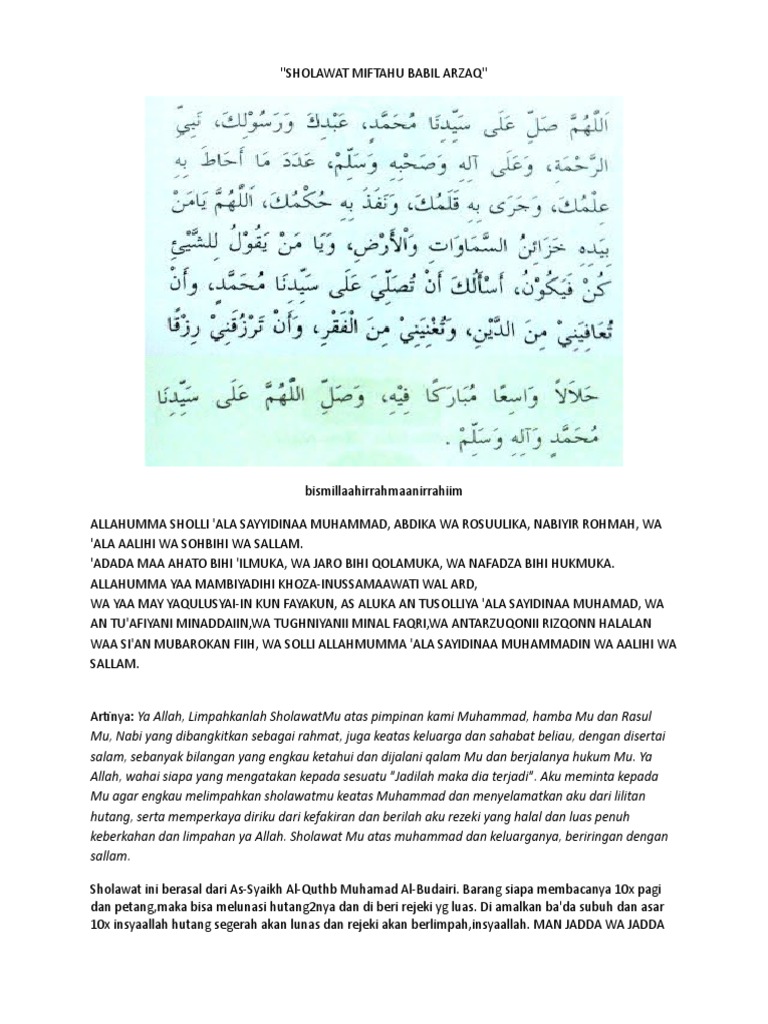 "SHOLAWAT MIFTAHU BABIL ARZAQ"
اَللّٰهُمَّ صَلِّ عَلَى سَيِّدِنَا مُحَمَّدٍ، عَبْدِكَ وَرَسُوْلِكَ، نَبِيِّ
الرَّحْمَةِ، وَعَلَى آلِهِ وَصَحْبِهِ وَسَلِّمْ، عَدَدَ مَا أَحَاطَ بِهِ
عِلْمُكَ، وَجَرَى بِهِ قَلَمُكَ، وَنَفَذَ بِهِ حُكْمُكَ، اَللّٰهُمَّ يَامَنْ
بِيَدِهِ خَزَائِنُ السَّمَاوَاتِ وَاْلأَرْضِ، وَيَا مَنْ يَقُوْلُ لِلشَّيْئِ
كُنْ فَيَكُوْنُ، أَسْأَلُكَ أَنْ تُصَلِّيَ عَلَى سَيِّدِنَا مُحَمَّدٍ، وأَنْ
تُعَافِيَنِيْ مِنَ الدَّيْنِ، وَتُغْنِيَنِيْ مِنَ الْفَقْرِ، وَأَنْ تَرْزُقَنِيْ رِزْقًا
حَلاَلاً وَاسِعًا مُبَارَكًا فِيْهِ، وَصَلِّ اللّٰهُمَّ عَلَى سَيِّدِنَا
مُحَمَّدٍ وَآلِهِ وَسَلِّمْ .
bismillaahirrahmaanirrahiim
ALLAHUMMA SHOLLI 'ALA SAYYIDINAA MUHAMMAD, ABDIKA WA ROSUULIKA, NABIYIR ROHMAH, WA
'ALA AALIHI WA SOHBIHI WA SALLAM.
'ADADA MAA AHATO BIHI 'ILMUKA, WA JARO BIHI QOLAMUKA, WA NAFADZA BIHI HUKMUKA.
ALLAHUMMA YAA MAMBIYADIHI KHOZA-INUSSAMAAWATI WAL ARD,
WA YAA MAY YAQULUSYAI-IN KUN FAYAKUN, AS ALUKA AN TUSOLLIYA 'ALA SAYIDINAA MUHAMAD, WA
AN TU'AFIYANI MINADDAIIN,WA TUGHNIYANII MINAL FAQRI,WA ANTARZUQONII RIZQONN HALALAN
WAA SI'AN MUBAROKAN FIIH, WA SOLLI ALLAHMUMMA 'ALA SAYIDINAA MUHAMMADIN WA AALIHI WA
SALLAM.
Artinya: Ya Allah, Limpahkanlah SholawatMu atas pimpinan kami Muhammad, hamba Mu dan Rasul
Mu, Nabi yang dibangkitkan sebagai rahmat, juga keatas keluarga dan sahabat beliau, dengan disertai
salam, sebanyak bilangan yang engkau ketahui dan dijalani qalam Mu dan berjalanya hukum Mu. Ya
Allah, wahai siapa yang mengatakan kepada sesuatu "Jadilah maka dia terjadi". Aku meminta kepada
Mu agar engkau melimpahkan sholawatmu keatas Muhammad dan menyelamatkan aku dari lilitan
hutang, serta memperkaya diriku dari kefakiran dan berilah aku rezeki yang halal dan luas penuh
keberkahan dan limpahan ya Allah. Sholawat Mu atas muhammad dan keluarganya, beriringan dengan
sallam.
Sholawat ini berasal dari As-Syaikh Al-Quthb Muhamad Al-Budairi. Barang siapa membacanya 10x pagi
dan petang,maka bisa melunasi hutang2nya dan di beri rejeki yg luas. Di amalkan ba'da subuh dan asar
10x insyaallah hutang segerah akan lunas dan rejeki akan berlimpah,insyaallah. MAN JADDA WA JADDA